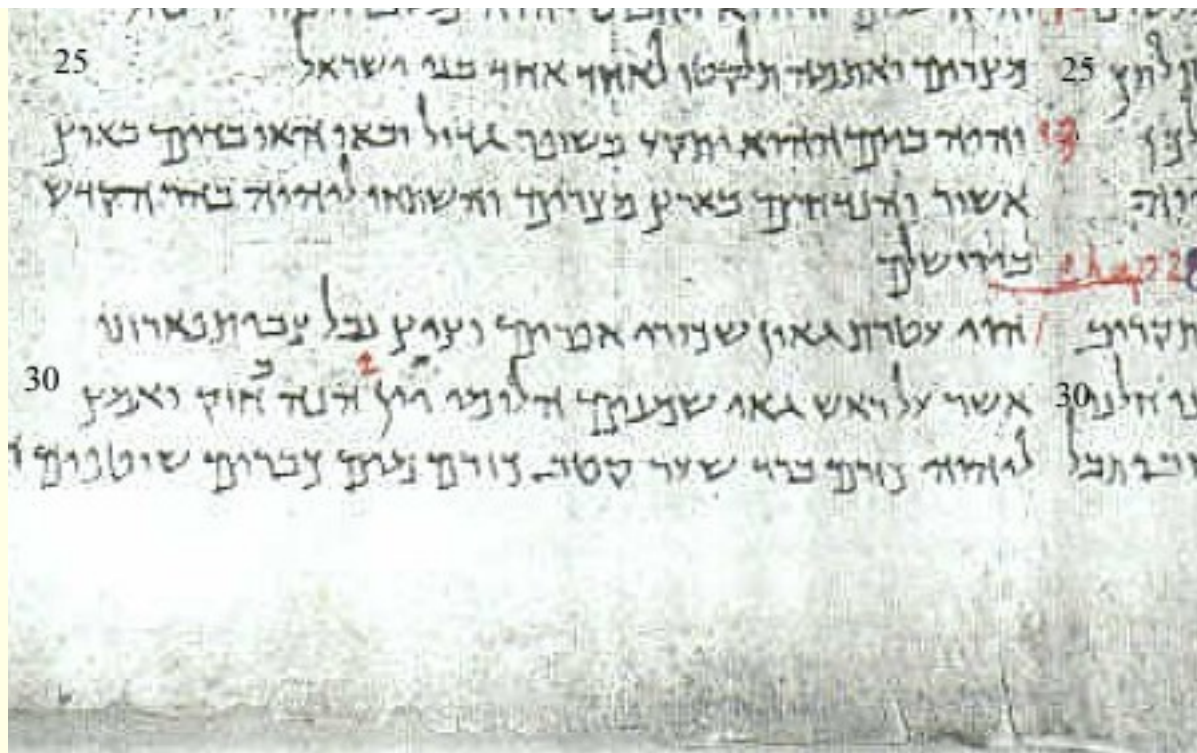 25
מצרים ואתמה תלקטו לאחד אחד בני ישראל
25
13
והיה ביום ההוא יתקע בשופר גדול ובאו האובדים בארץ
אשור והנדחים בארץ מצרים והשתחוו ליהוה בהר הקדש
בירושלם
chap 28
1
הוי עטרת גאון שכורי אפרים וציץ נבל צבי תפארתו
30
2
אשר על ראש גאי שמנים הלומי יין הנה חזק ואמץ
30
ליהוה כזרם ברד שער קטב כזרם מים כבירים שוטפים